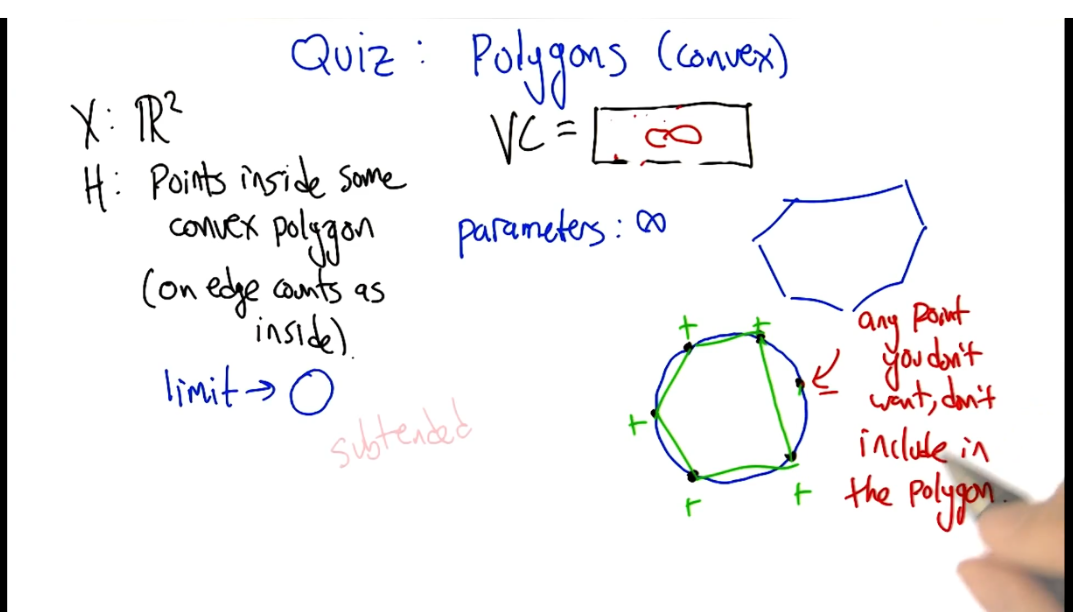 Quiz: Polygons (convex)
X: ℝ²
VC = ∞
H: Points inside some
convex polygon
(on edge counts as
inside).
parameters: ∞
limit → ○
subtended
+ +
+
+ +
any point
you don't
want, don't
include in
the polygon.